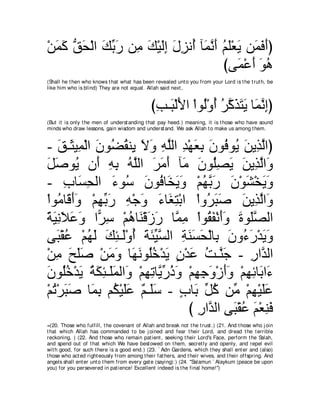 (أَفَمَن يَعْلَمُ أَنَّمَآ أُنزِلَ إِلَيْكَ مِن رَبِّكَ الْحَقُّ كَمَنْ
هُوَ أَعْمَى)
(Shall he then who knows that what has been revealed unto you from your Lord is the truth, be
like him who is blind) They are not equal. Allah said next,
(إِنَّمَا يَتَذَكَّرُ أُوْلُواْ الأَلْبَـبِ)
(But it is only the men of understanding that pay heed.) meaning, it is those who have sound
minds who draw lessons, gain wisdom and understand. We ask Allah to make us among them.
الَّذِينَ يُوفُونَ بِعَهْدِ اللَّهِ وَلاَ يَنقُضُونَ الْمِيثَـقَ -
وَالَّذِينَ يَصِلُونَ مَآ أَمَرَ اللَّهُ بِهِ أَن يُوصَلَ
وَيَخْشَوْنَ رَبَّهُمْ وَيَخَافُونَ سُوءَ الحِسَابِ -
وَالَّذِينَ صَبَرُواْ ابْتِغَاءَ وَجْهِ رَبِّهِمْ وَأَقَامُواْ
الصَّلَوةَ وَأَنْفَقُواْ مِمَّا رَزَقْنَاهُمْ سِرًّا وَعَلاَنِيَةً
وَيَدْرَءُونَ بِالْحَسَنَةِ السَّيِّئَةَ أُوْلَـئِكَ لَهُمْ عُقْبَى
الدَّارِ - جَنَّـتُ عَدْنٍ يَدْخُلُونَهَا وَمَنْ صَلَحَ مِنْ
ءَابَائِهِمْ وَأَزْوَجِهِمْ وَذُرِّيَّاتِهِمْ وَالمَلَـئِكَةُ يَدْخُلُونَ
عَلَيْهِمْ مِّن كُلِّ بَابٍ - سَلَـمٌ عَلَيْكُم بِمَا صَبَرْتُمْ
فَنِعْمَ عُقْبَى الدَّارِ )
«(20. Those who fulfill, the covenant of Allah and break not the trust.) (21. And those who join
that which Allah has commanded to be joined and fear their Lord, and dread the terrible
reckoning. ) (22. And those who remain patient, seeking their Lord's Face, perform the Salah,
and spend out of that which We have bestowed on them, secretly and openly, and repel evil
with good, for such there is a good end.) (23. `Adn Gardens, which they shall enter and (also)
those who acted righteously from among their fathers, and their wives, and their offspring. And
angels shall enter unto them from every gate (saying:) (24. "Salamun `Alaykum (peace be upon
you) for you persevered in patience! Excellent indeed is the final home!")